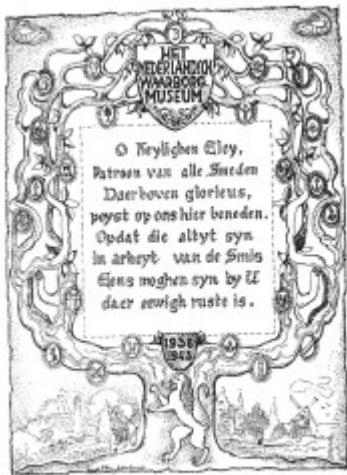 HET
NEDERLANDSCH
WAARBORG
MUSEUM
O Heylighen Eloy,
Patroon van alle Smeden
Daerboven glorieus,
peyst op ons hier beneden.
Opdat die altyt syn
in arbeyt van de Smis
Eens moghen syn by U
daer eewigh ruste is.
1938
1943